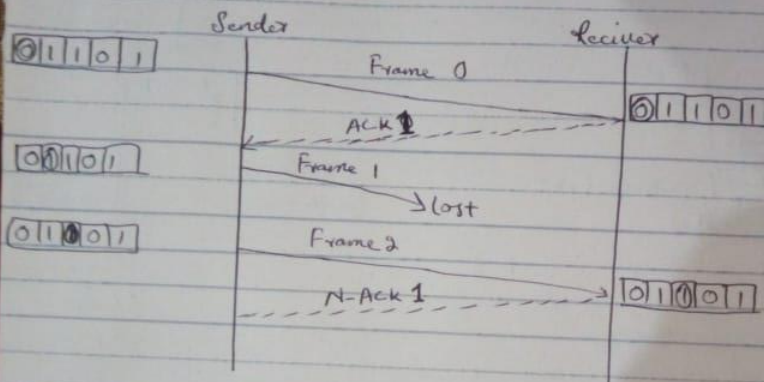 Sender
Reciver
0 1 1 0 1
Frame 0
0 1 1 0 1
ACK 1
0 0 1 0 1
Frame 1
Lost
0 1 0 0 1
Frame 2
0 1 0 0 1
N-Ack 1